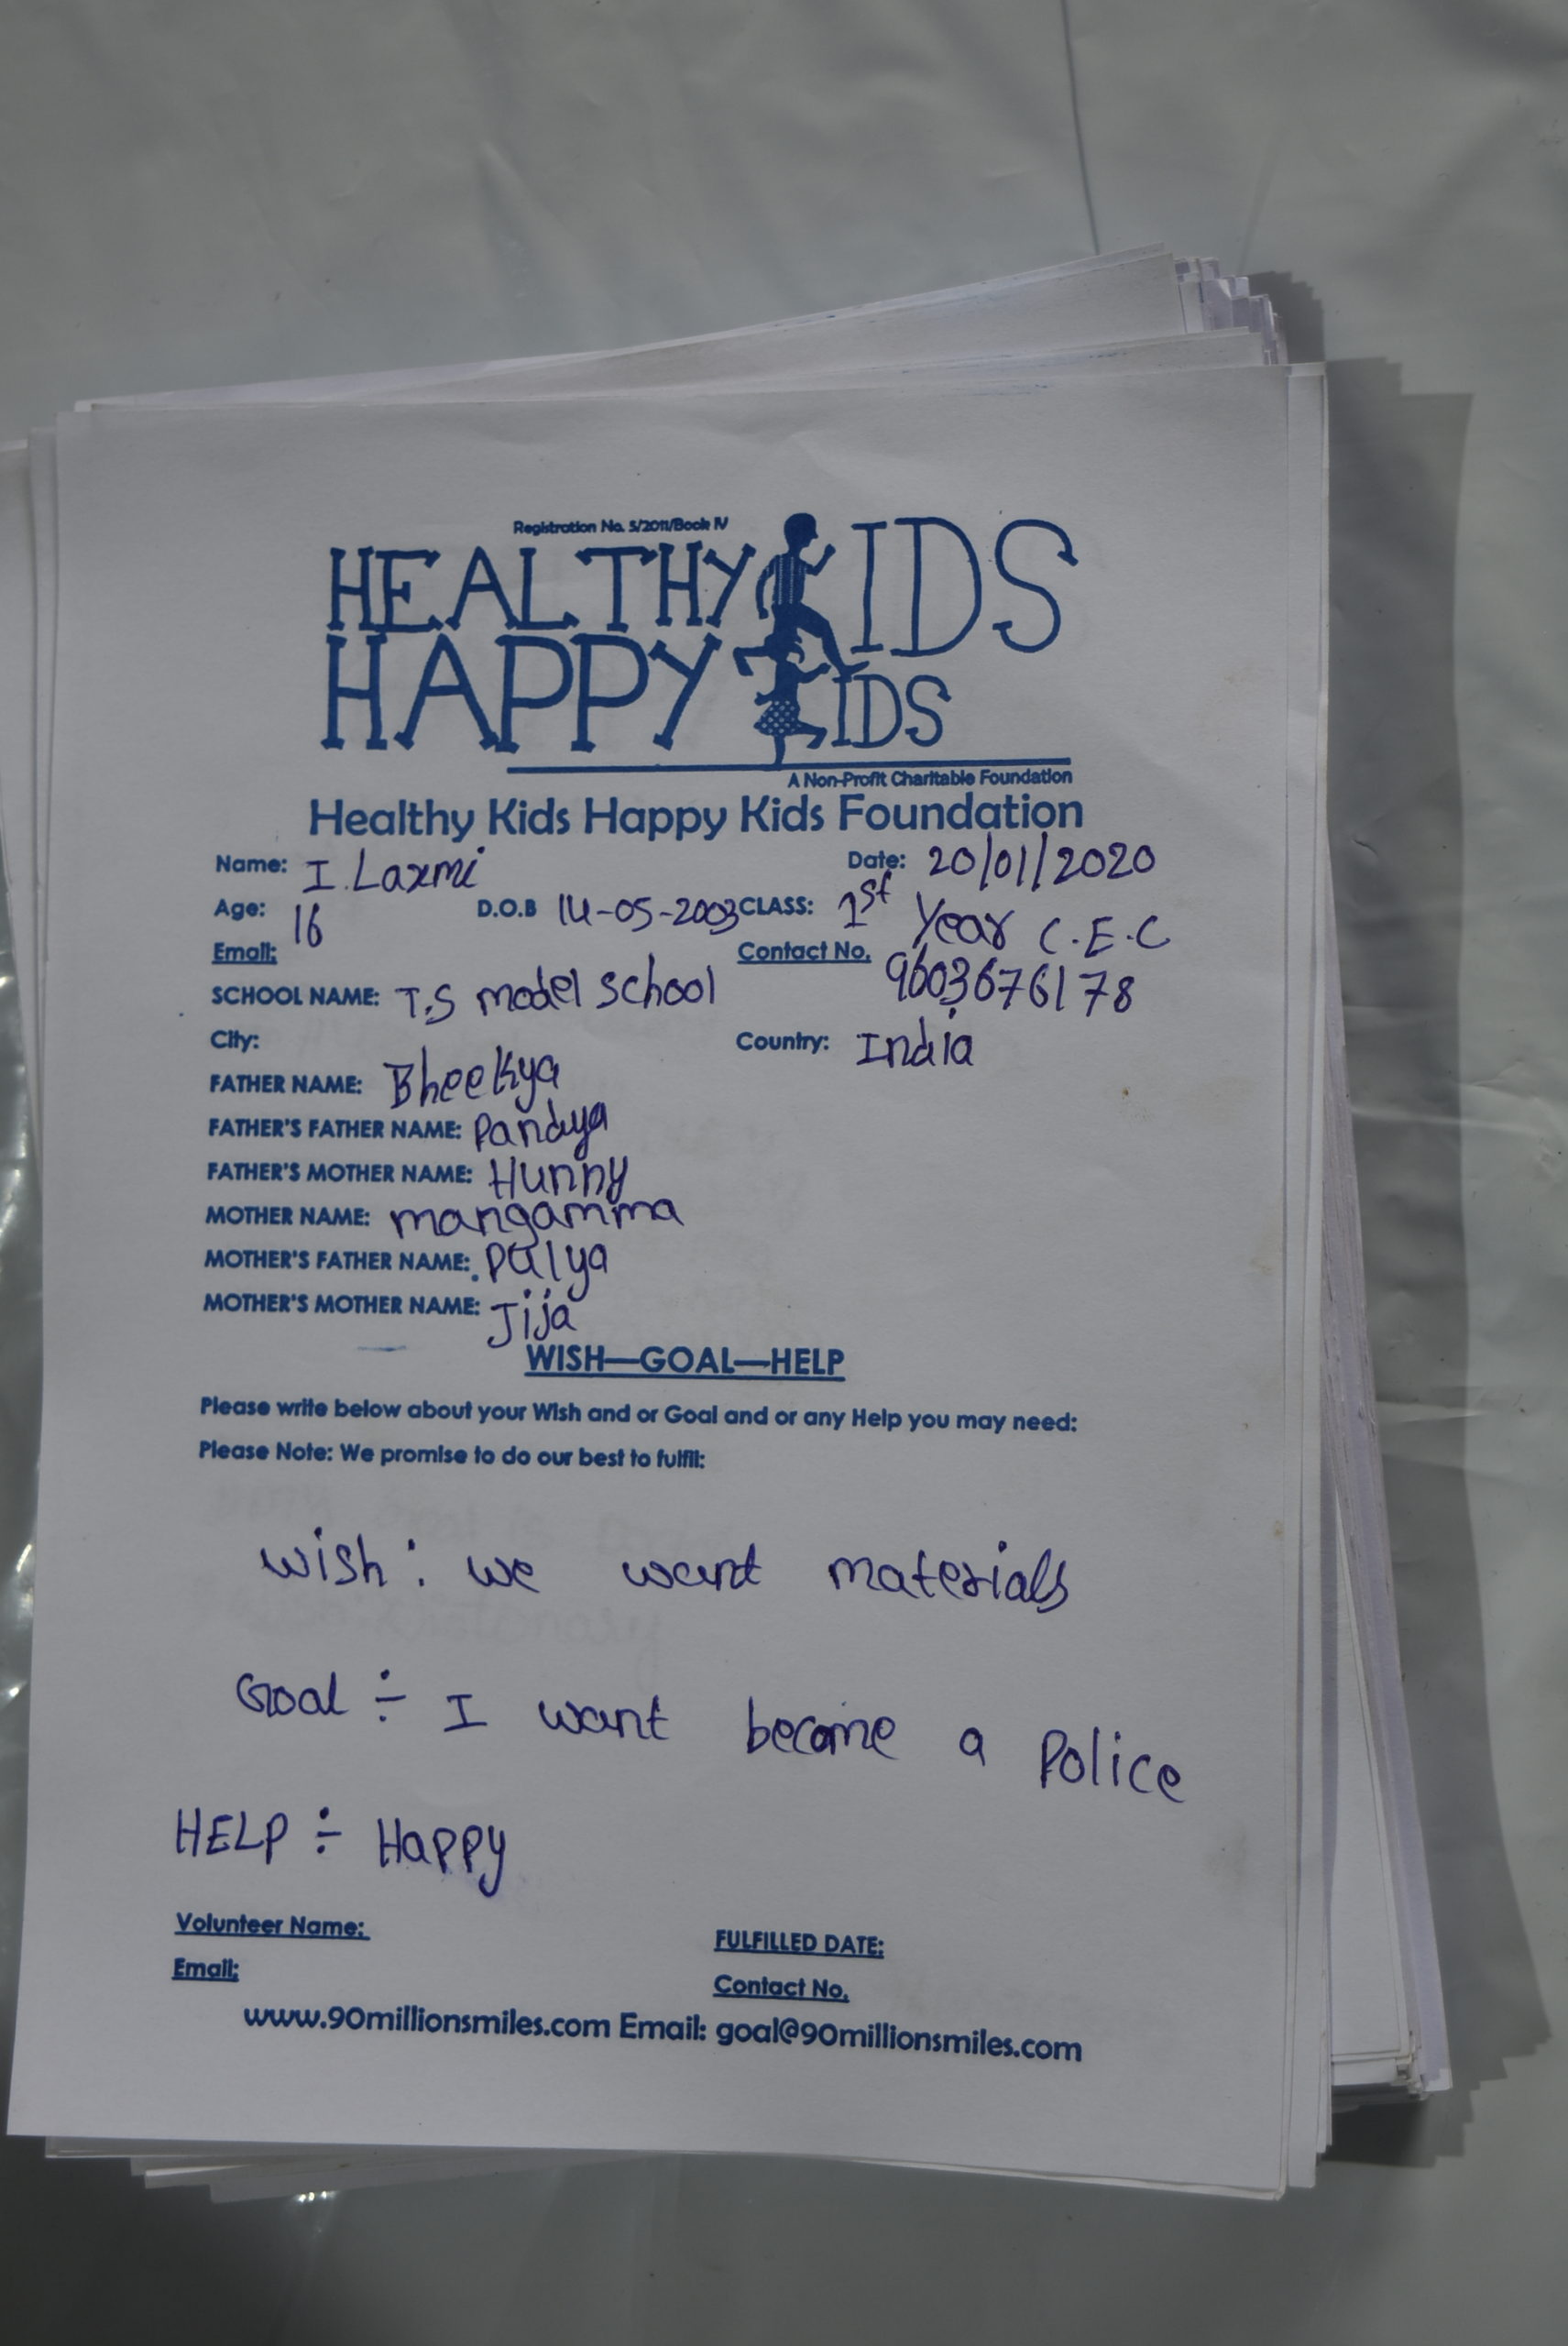 Registration No. 5/2011/Book IV
HEALTHY KIDS
HAPPY KIDS
A Non-Profit Charitable Foundation
Healthy Kids Happy Kids Foundation
Name: I. Laxmi Date: 20/01/2020
Age: 16 D.O.B 14-05-2003 CLASS: 1st Year C.E.C
Email: Contact No. 9603676178
SCHOOL NAME: T.S model school
City: Country: India
FATHER NAME: Bheekya
FATHER'S FATHER NAME: Pandya
FATHER'S MOTHER NAME: Hunny
MOTHER NAME: mangamma
MOTHER'S FATHER NAME: Palya
MOTHER'S MOTHER NAME: Jija
WISH—GOAL—HELP
Please write below about your Wish and or Goal and or any Help you may need:
Please Note: We promise to do our best to fulfil:
wish: we want materials
Goal ÷ I want become a Police
HELP ÷ Happy
Volunteer Name: FULFILLED DATE:
Email: Contact No.
www.90millionsmiles.com Email: goal@90millionsmiles.com